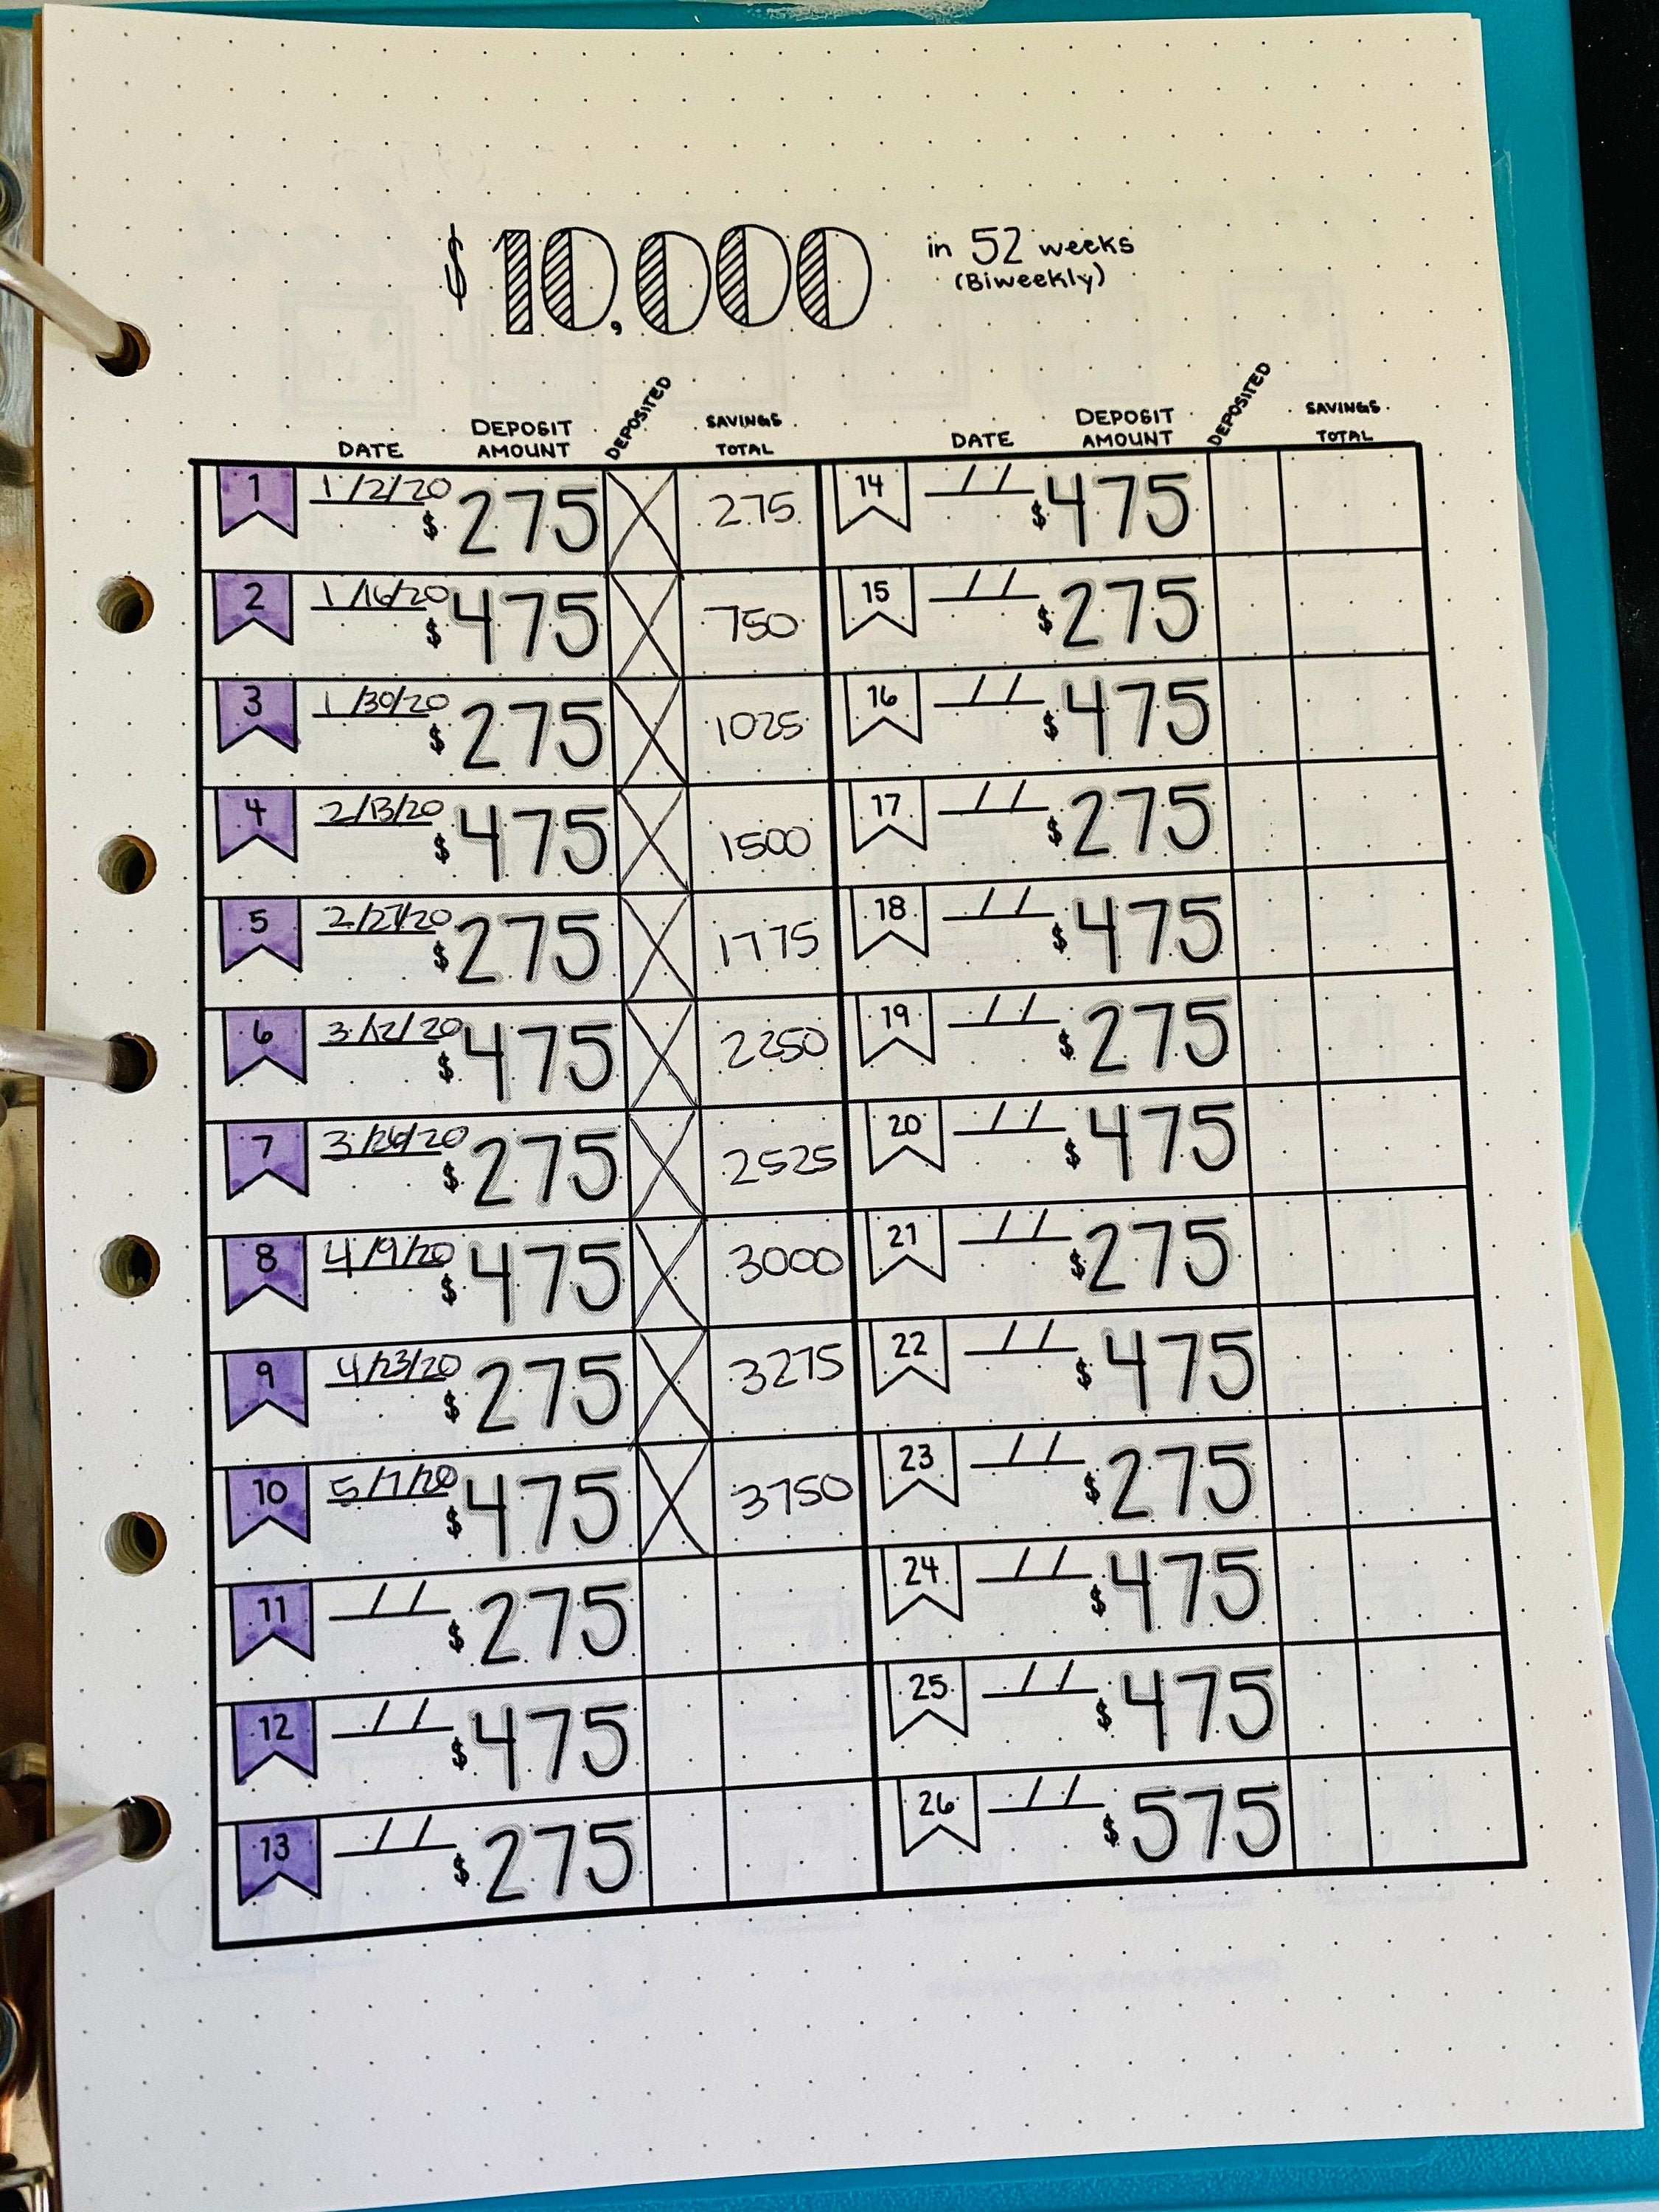 $10,000 in 52 weeks
(Biweekly)
DATE DEPOSIT AMOUNT DEPOSITED SAVINGS TOTAL DATE DEPOSIT AMOUNT DEPOSITED SAVINGS TOTAL
1 1/2/20 $275 X 275
2 1/16/20 $475 X 750
3 1/30/20 $275 X 1025
4 2/13/20 $475 X 1500
5 2/27/20 $275 X 1775
6 3/12/20 $475 X 2250
7 3/26/20 $275 X 2525
8 4/9/20 $475 X 3000
9 4/23/20 $275 X 3275
10 5/7/20 $475 X 3750
11 / / $275
12 / / $475
13 / / $275
14 / / $475
15 / / $275
16 / / $475
17 / / $275
18 / / $475
19 / / $275
20 / / $475
21 / / $275
22 / / $475
23 / / $275
24 / / $475
25 / / $475
26 / / $575